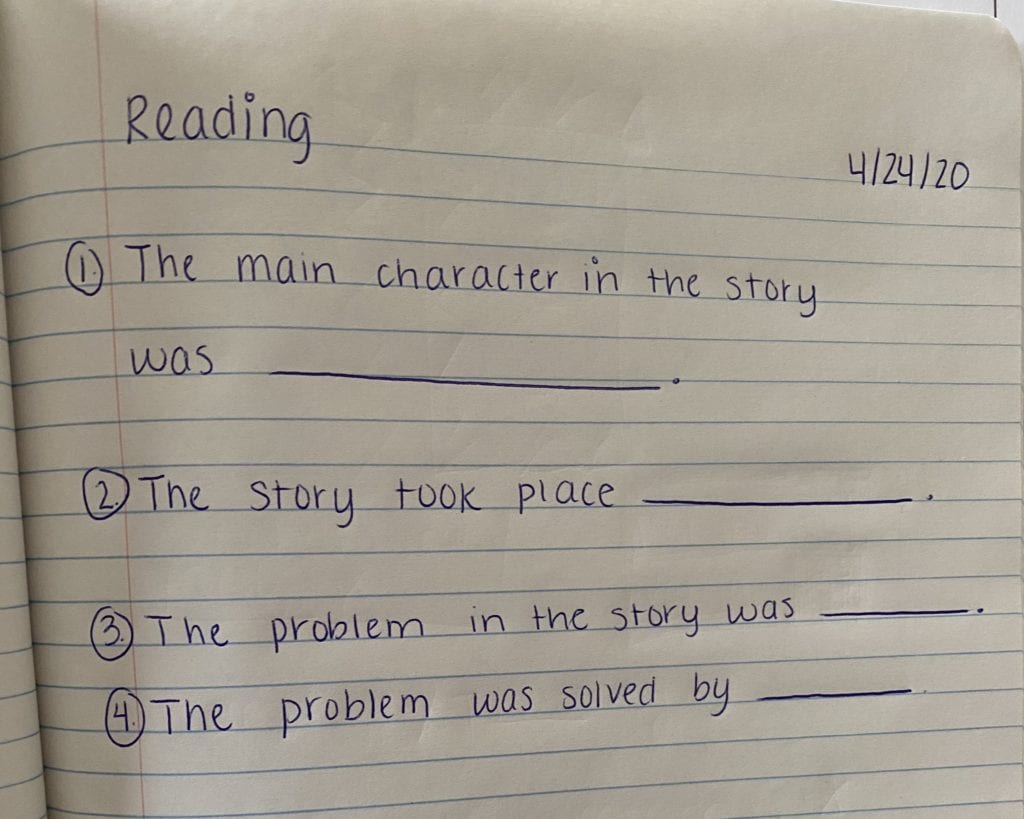 Reading
4/24/20
1. The main character in the story
was ____________.
2. The story took place ____________.
3. The problem in the story was ______.
4. The problem was solved by ______.